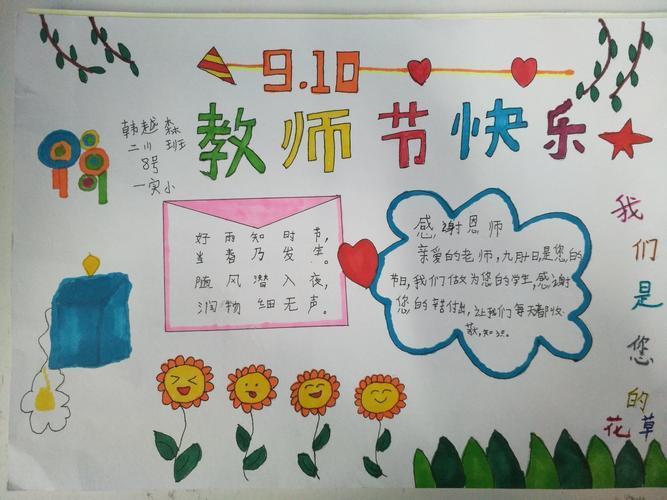 9.10
教师节快乐
韩越森
二11班
8号
一实小
好雨知时节,
当春乃发生。
随风潜入夜,
润物细无声。
感谢恩师
亲爱的老师,九月十日是您的
节日,我们做为您的学生,感谢
您的辛苦付出,让我们每天都收
获,知识。
我们是您的花草